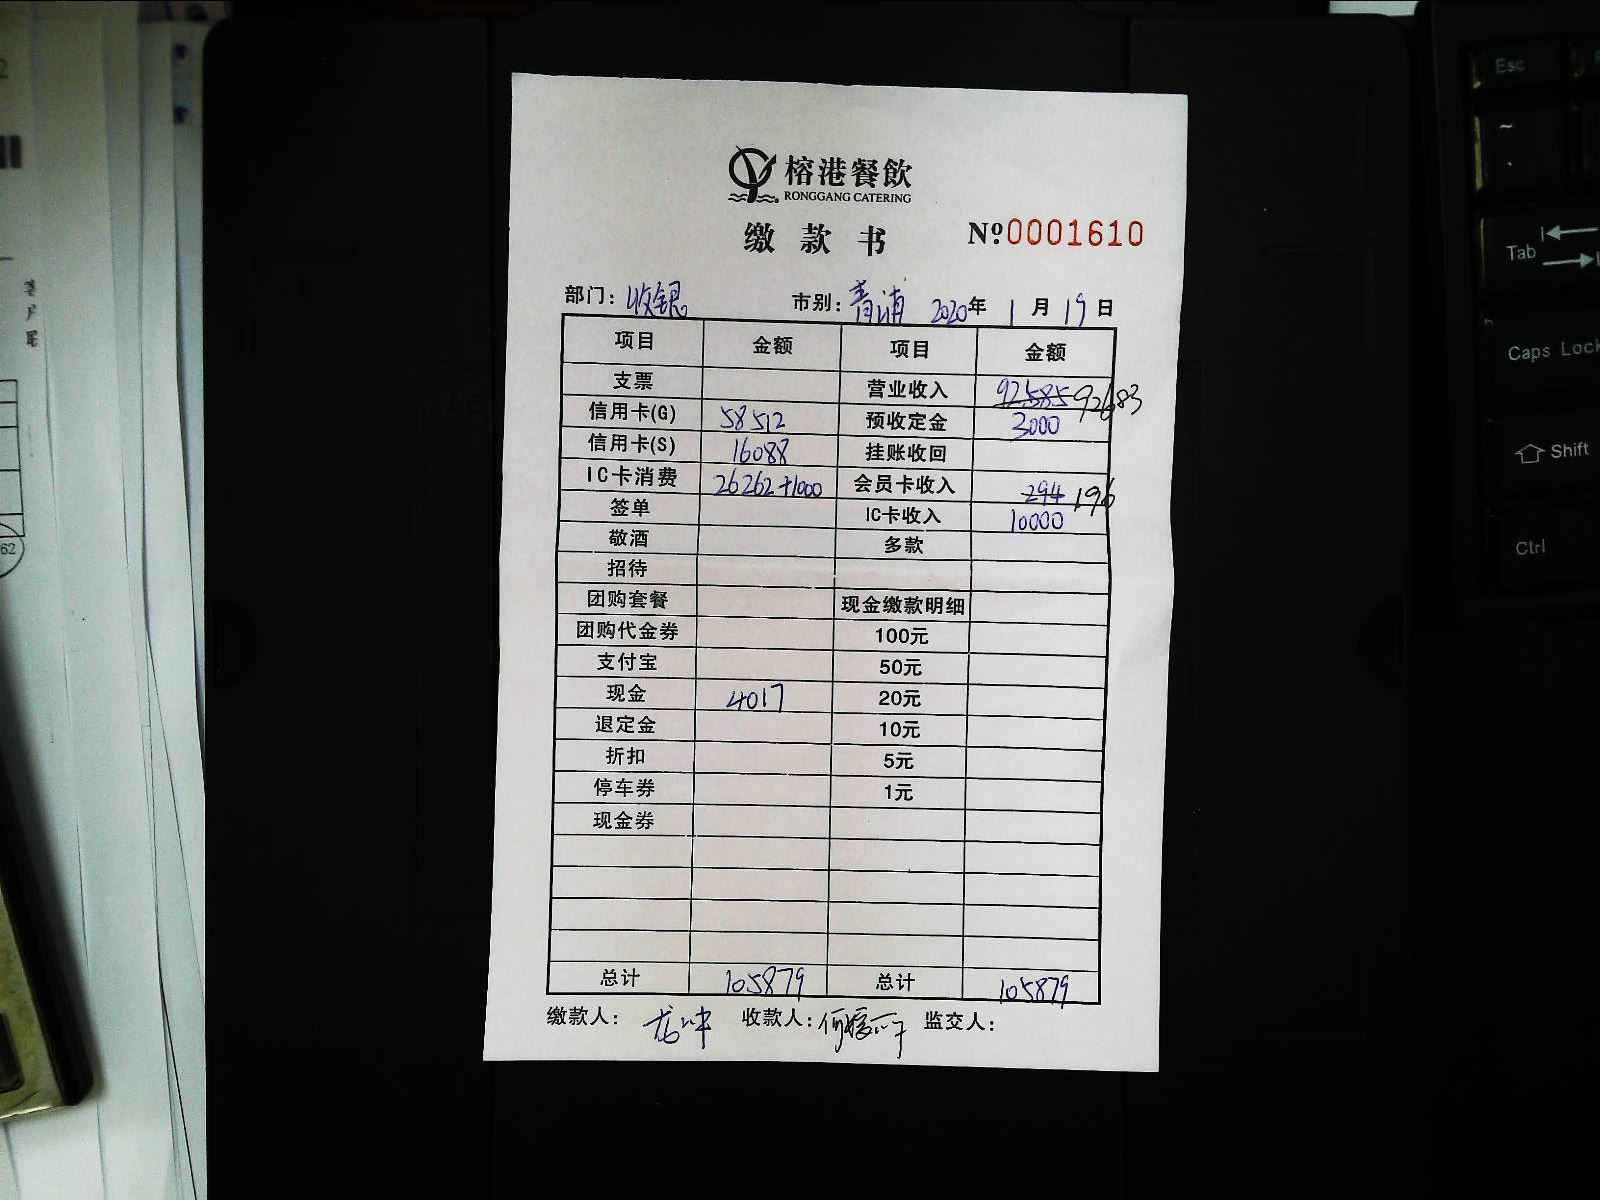 榕港餐飲
RONGGANG CATERING
缴款书 №0001610
部门：收银 市别：青浦 2020年 1月19日
项目 金额 项目 金额
支票 营业收入 92585 92683
信用卡(G) 58512 预收定金 3000
信用卡(S) 16088 挂账收回
IC卡消费 26262+1000 会员卡收入 294 196
签单 IC卡收入 10000
敬酒 多款
招待
团购套餐 现金缴款明细
团购代金券 100元
支付宝 50元
现金 4017 20元
退定金 10元
折扣 5元
停车券 1元
现金券
总计 105879 总计 105879
缴款人： 收款人： 监交人：
Esc
~
Tab
Caps Lock
Shift
Ctrl
62